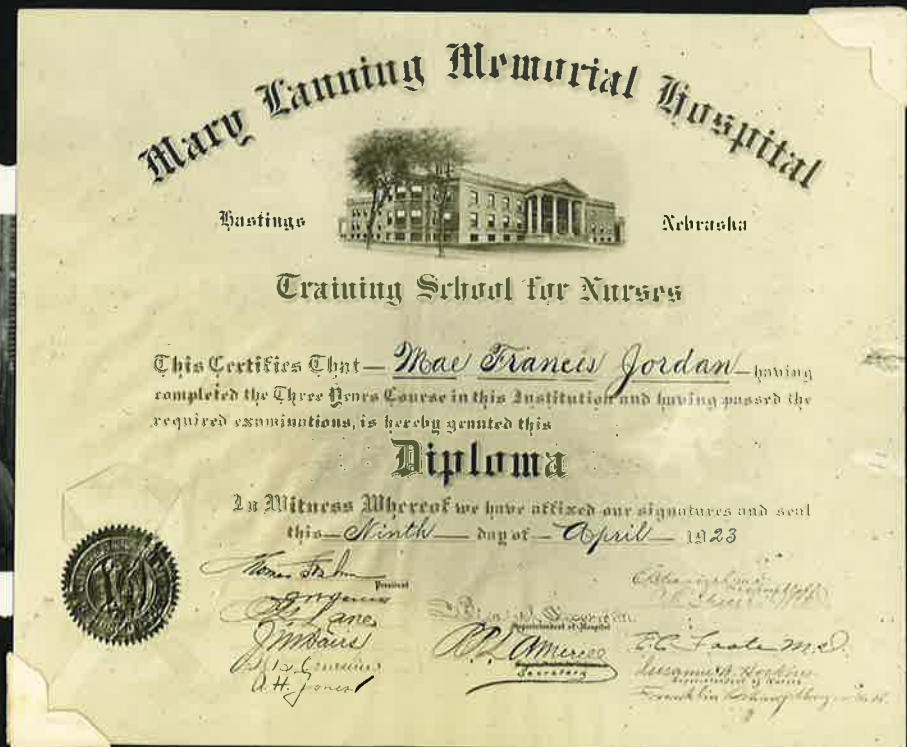 Mary Lanning Memorial Hospital
Hastings Nebraska
Training School for Nurses
This Certifies That Mae Francis Jordan having
completed the Three Years Course in this Institution and having passed the
required examinations, is hereby granted this
Diploma
In Witness Whereof we have affixed our signatures and seal
this Ninth day of April 1923
President
Lane
Superintendent of Hospital
Secretary
A. H. Jones
E. C. Foote M.D.
Superintendent of Nurses